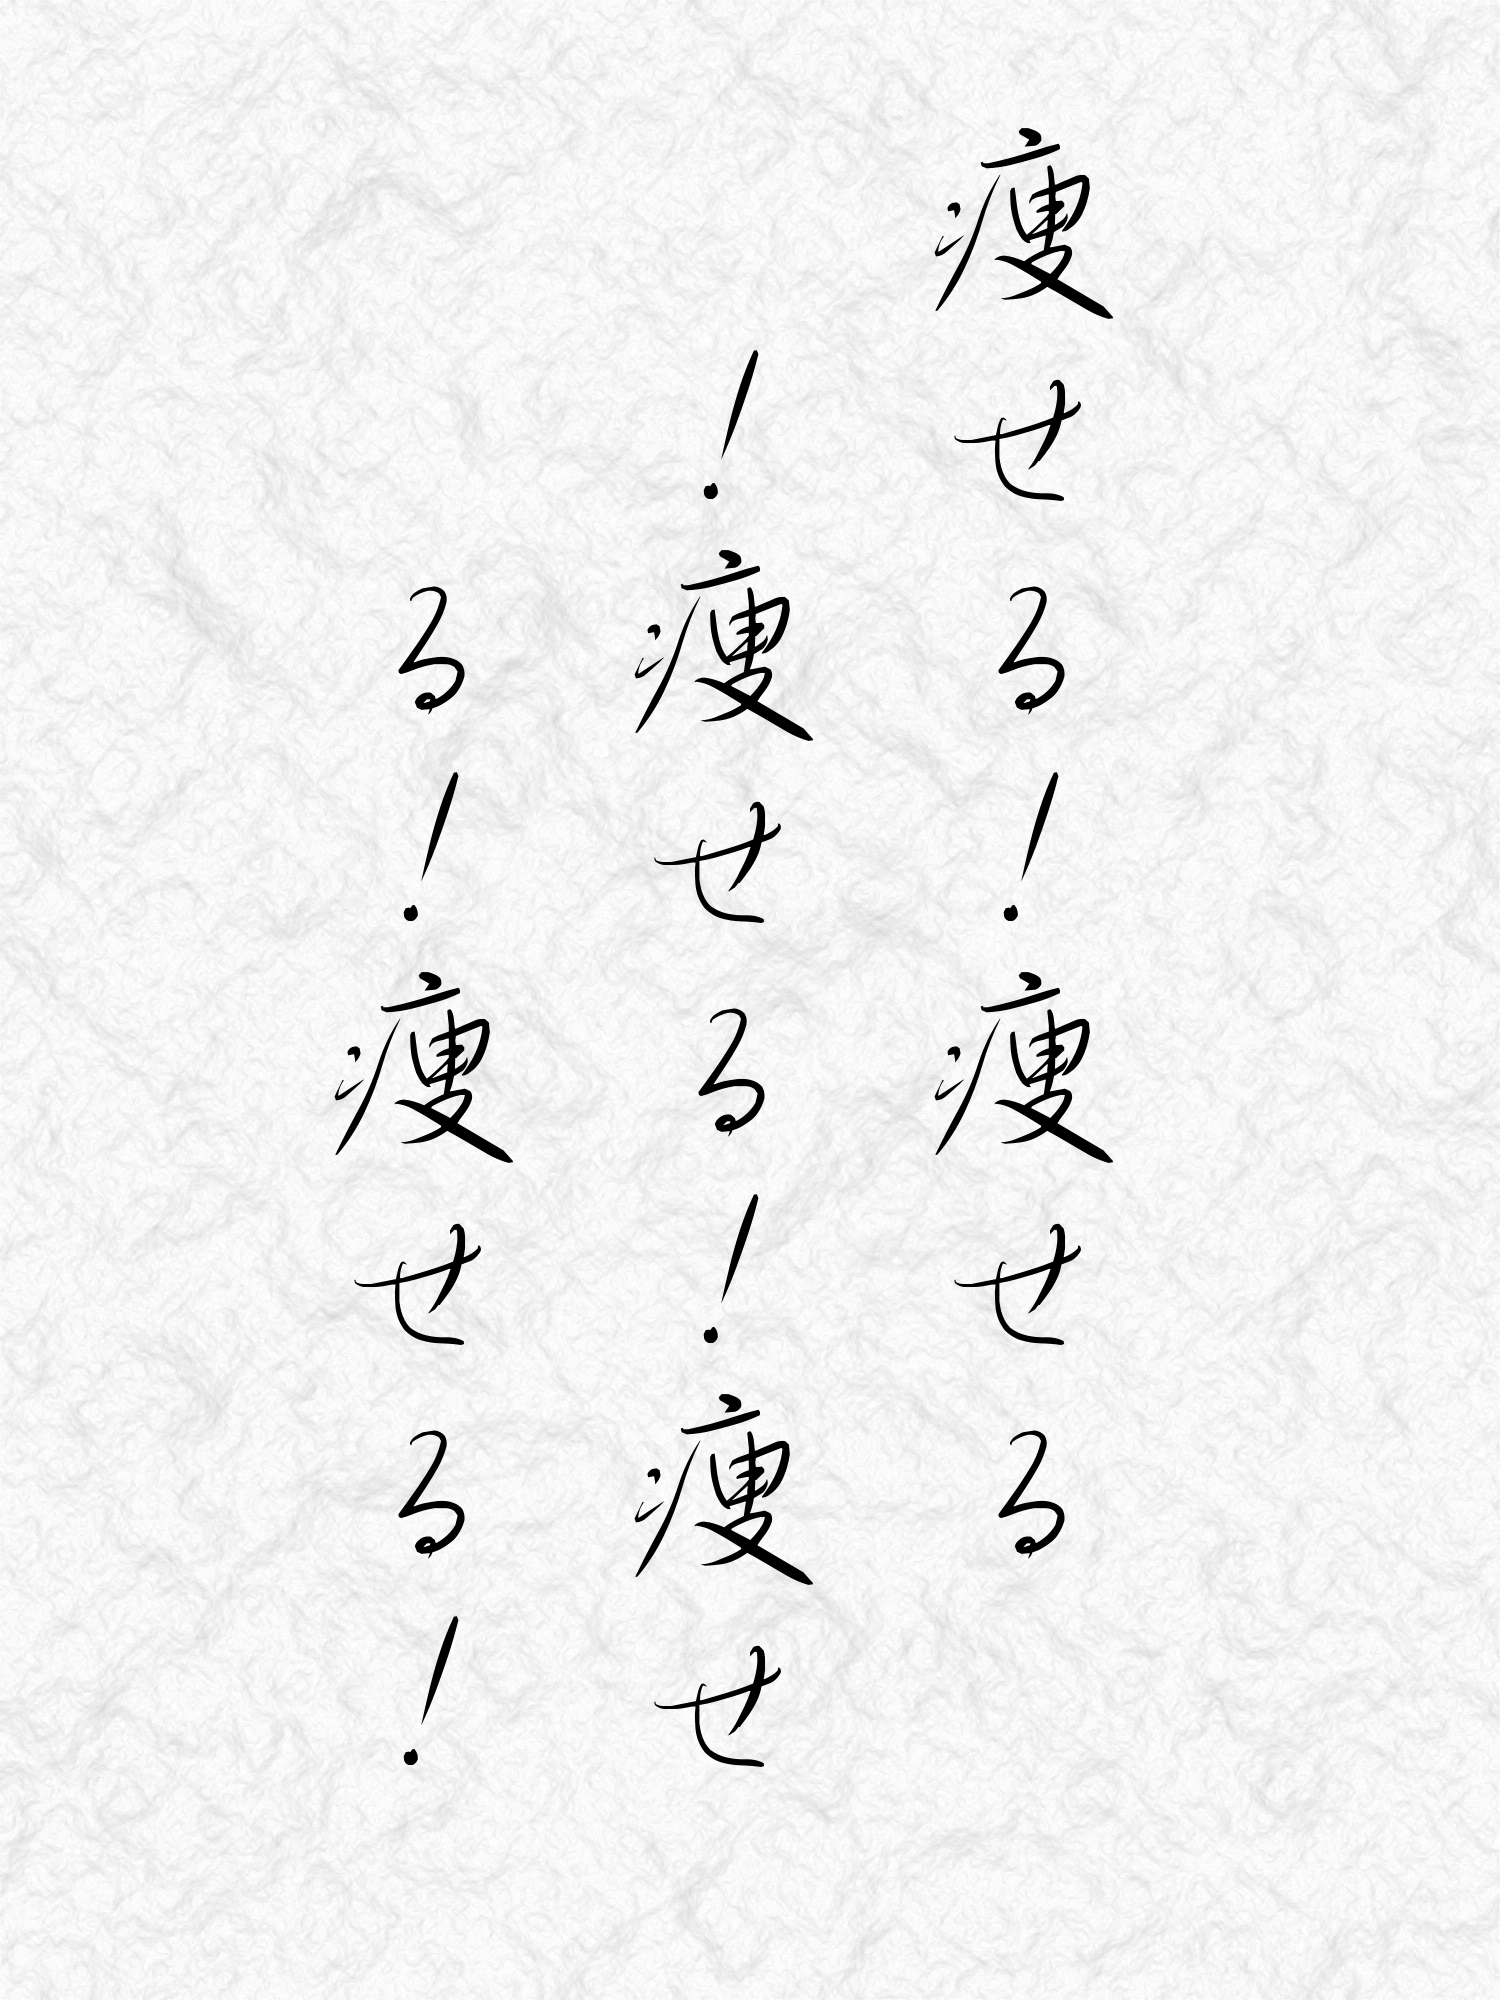 痩せる!痩せる
!痩せる!痩せ
る!痩せる!